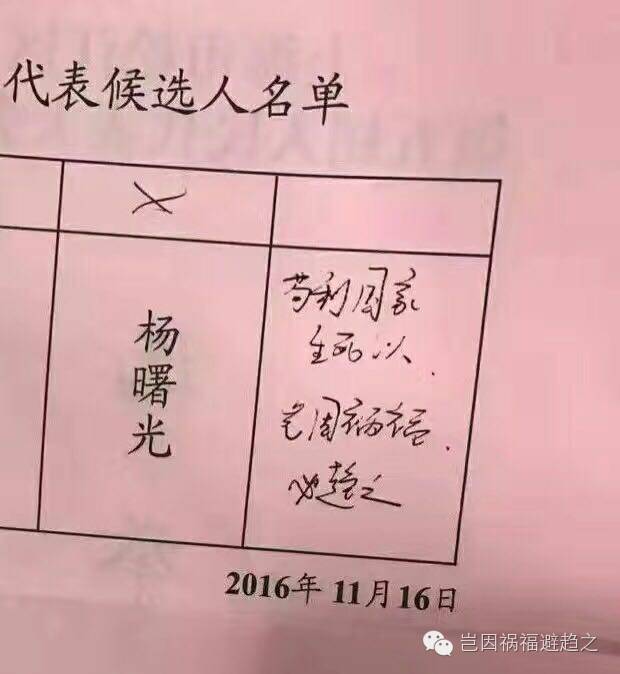 代表候选人名单
×
杨曙光
苟利国家
生死以.
岂因祸福.
避趋之
2016年 11月 16日
岂因祸福避趋之